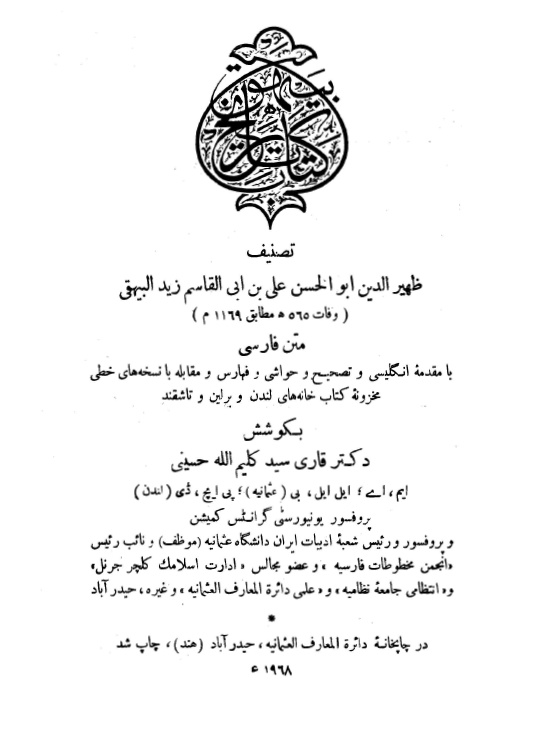 کتاب تاریخ بیهق
تصنیف
ظهیر الدین ابو الحسن علی بن ابی القاسم زید البیهقی
( وفات ٥٦٥ ھ مطابق ١١٦٩ م )
متن فارسی
با مقدمهٔ انگلیسی و تصحیح و حواشی و فهارس و مقابله با نسخه‌های خطی
مخزونهٔ کتاب خانه‌های لندن و برلین و تاشقند
بکوشش
دکتر قاری سید کلیم الله حسینی
ایم، اے؛ ایل ایل، بی (عثمانیه)؛ پی ایچ، ڈی (لندن)
پروفسور یونیورسٹی گرانٹس کمیشن
و پروفسور و رئیس شعبهٔ ادبیات ایران دانشگاه عثمانیه (موظف) و نائب رئیس
«انجمن مخطوطات فارسیه» و عضو مجالس «ادارت اسلامك كلچر جرنل»
و «انتظامی جامعهٔ نظامیه» و «علمی دائرة المعارف العثمانیه» و غیره، حیدر آباد
در چاپخانهٔ دائرة المعارف العثمانیه، حیدر آباد (هند)، چاپ شد
١٩٦٨ ء